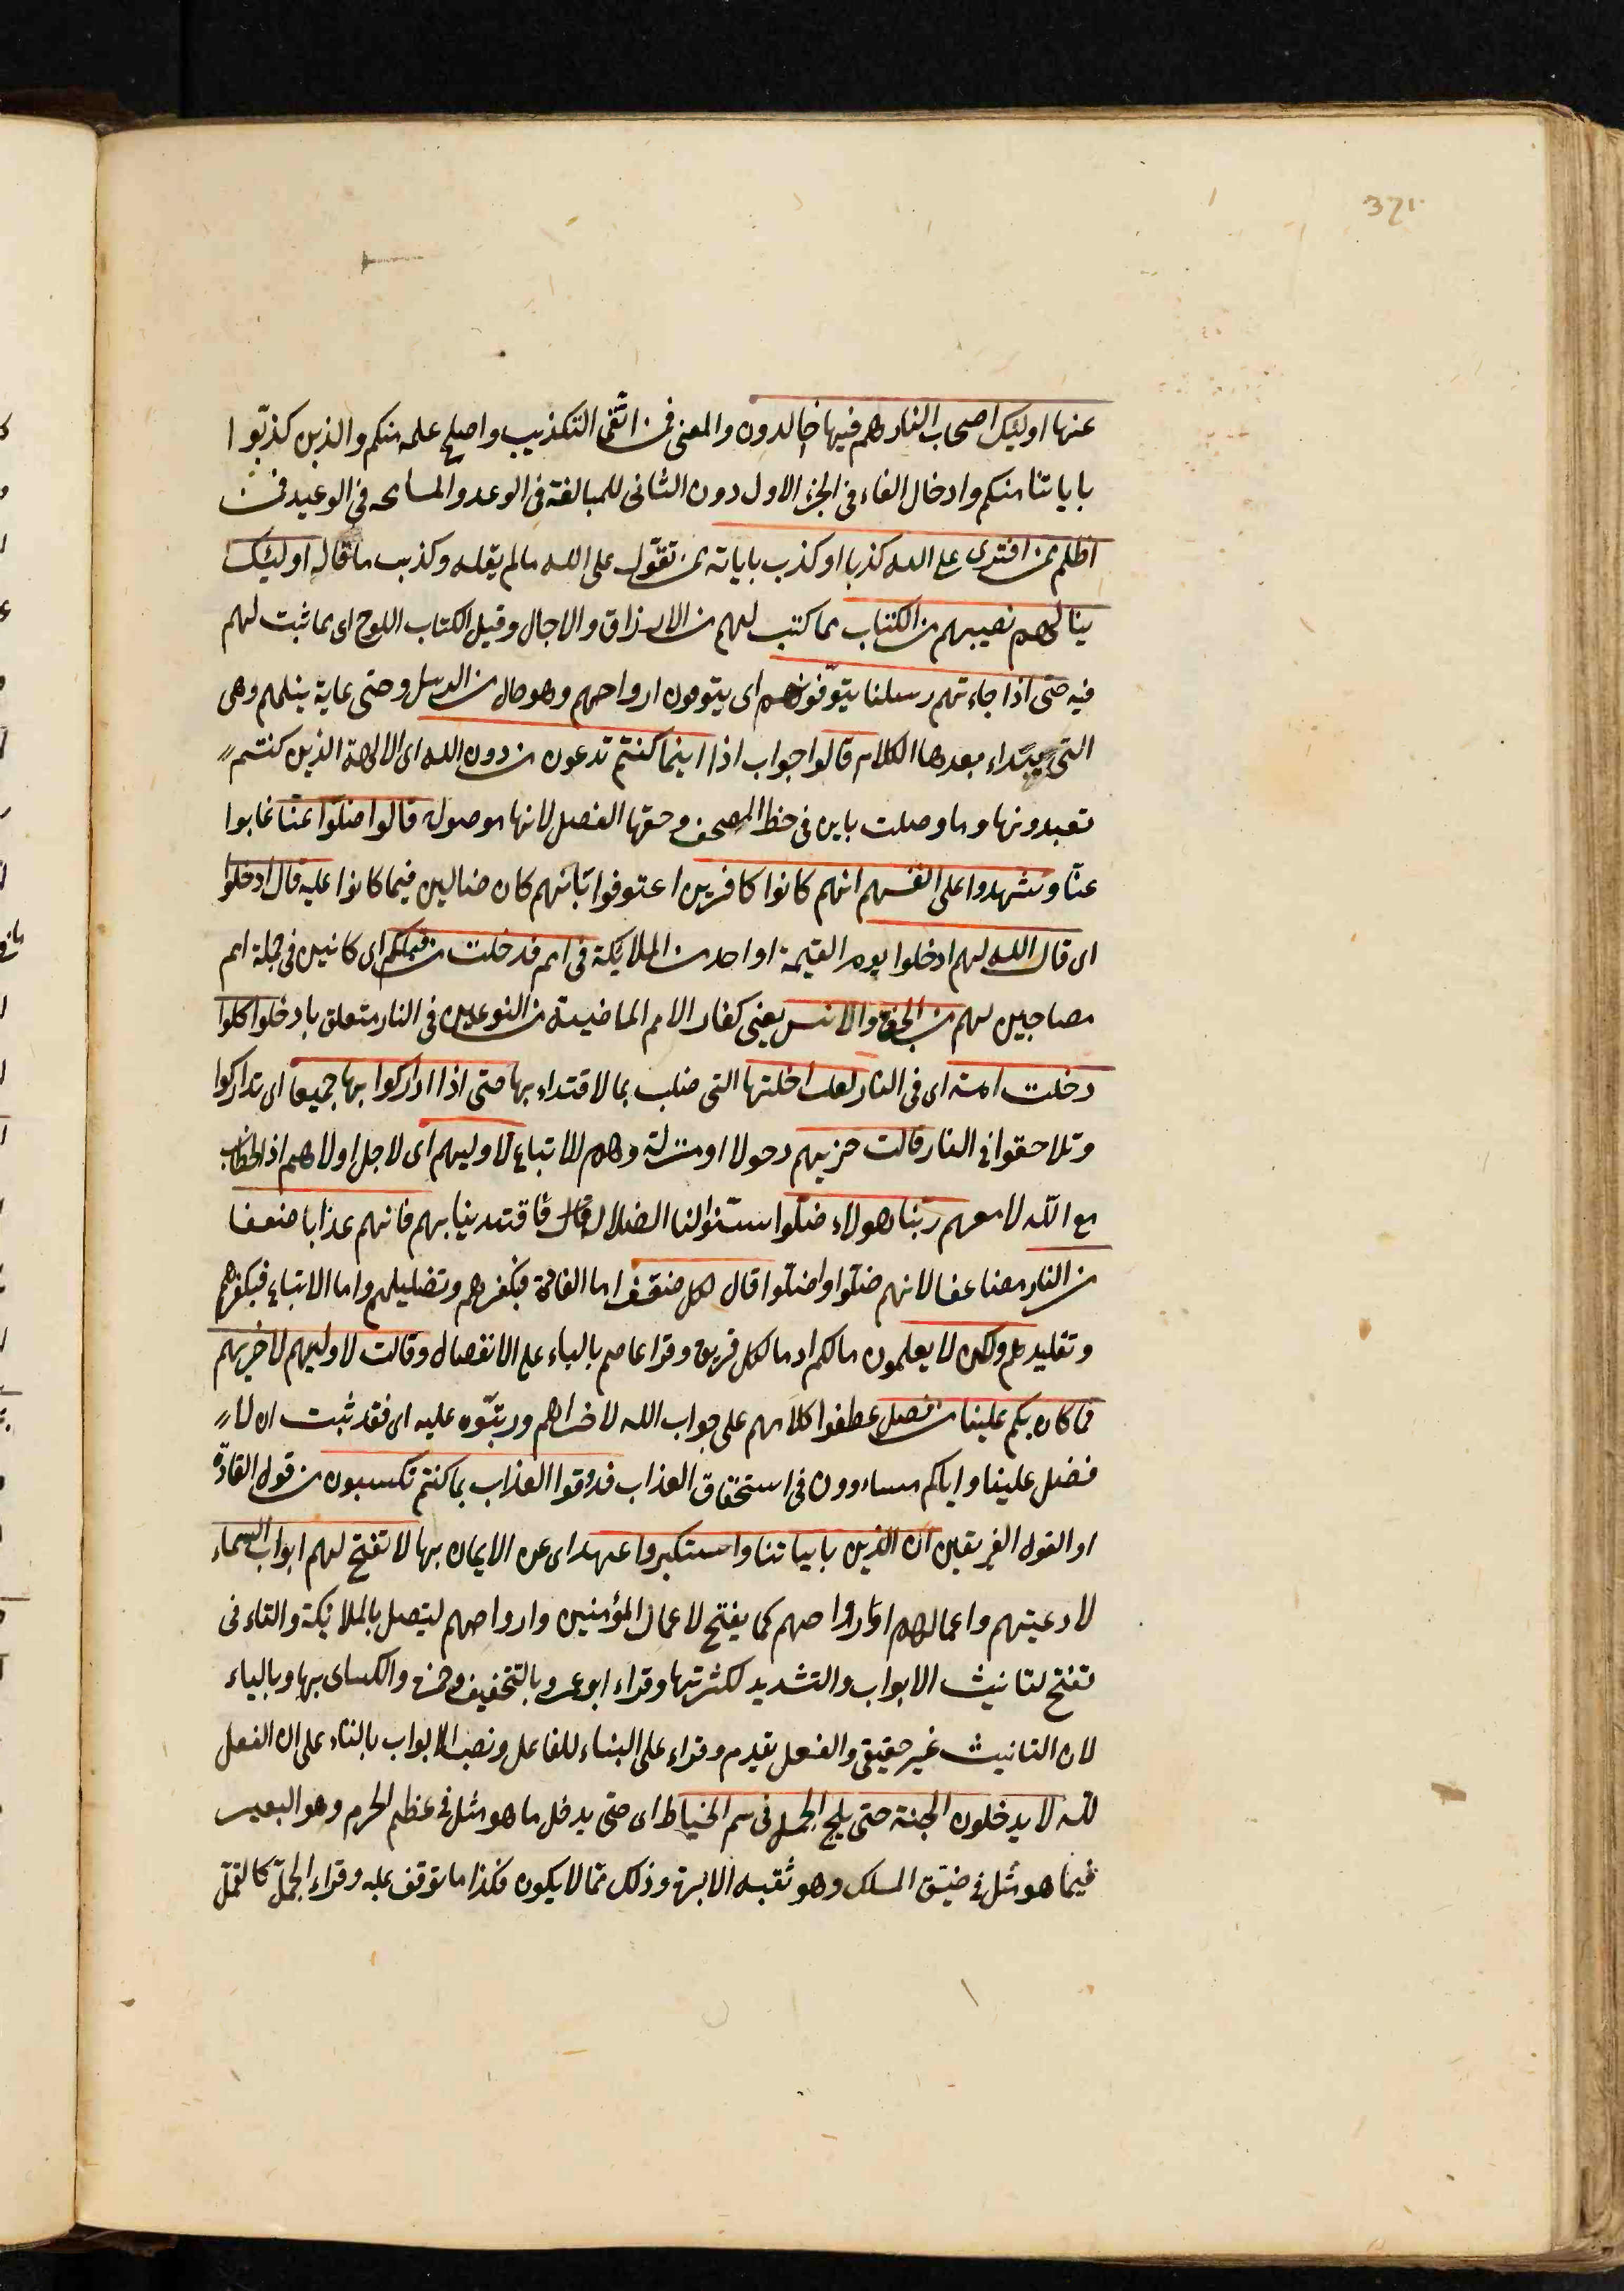 321
عنها اوليك اصحاب النار هم فيها خالدون والمعنى فمن اتقى التكذيب واصلح عمله منكم والذين كذبوا
باياتنا منكم وادخال الفاء فى الجزء الاول دون الثانى للمبالغة فى الوعد والمسامحه فى الوعيد فمن
اظلم ممن افترى على الله كذبا او كذب باياته ممن تقوّل على الله مالم يقله وكذب ما قاله اوليك
ينالهم نصيبهم من الكتاب مما كتب لهم من الارزاق والاجال وقيل الكتاب اللوح اى مما ثبت لهم
فيه حتى اذا جاءتهم رسلنا يتوفّونهم اى يتوفون ارواحهم وهو حال من الرسل وحتى غاية ينلهم وهى
التى يبتداء بعدها الكلام قالوا جواب اذا اينما كنتم تدعون من دون الله اى الالهة الذين كنتم
تعبدونها وما وصلت باين فى خط المصحف وحقها الفصل لانها موصولة قالوا ضلّوا عنّا غابوا
عنّا وشهدوا على انفسهم انهم كانوا كافرين اعترفوا بانهم كان ضالين فيما كانوا عليه قال ادخلوا
اى قال الله لهم ادخلوا يوم القيمة او احد من الملايكة فى امم قد خلت من قبلكم اى كائنين فى جملة امم
مصاحبين لهم من الجن والانس يعنى كفار الامم الماضية من النوعين فى النار متعلق بادخلوا كلما
دخلت امة اى فى النار لعنت اختها التى ضلت بالاقتداء بها حتى اذا ادّاركوا بها جميعا اى تداركوا
وتلاحقوا فى النار قالت اخريهم دخولا او منزلة وهم الاتباع لاوليهم اى لاجل اولاهم اذ الخطاب
مع الله لا معهم ربّنا هولاء ضلّوا سنّوا لنا الضلال فاقتدينا بهم فاتهم عذابا ضعفا
من النار مضاعفا لانهم ضلّوا واضلّوا قال لكل ضعف اما القادة فبكفرهم وتضليلهم واما الاتباع فبكفرهم
وتقليدهم ولكن لا يعلمون مالكم او ما لكل فريق وقرا عاصم بالياء على الانفصال وقالت لاوليهم لاخريهم
فما كان بكم علينا من فضل عطفوا كلامهم على جواب الله لاخراهم ورتبّوه عليه اى فقد ثبت ان لا
فضل علينا واياكم مساءوون فى استحقاق العذاب فذوقوا العذاب بما كنتم تكسبون من قول القادّة
او القول الفريقين ان الذين باياتنا واستكبروا عنها اى عن الايمان بها لا تفتح لهم ابواب السماء
لادعيتهم واعمالهم او ارواحهم كما يفتح لاعمال المؤمنين وارواحهم ليتصل بالملائكة والتاء فى
تفتح لتانيث الابواب والتشديد لكثرتها وقراء ابو عمرو بالتخفيف وحمزه والكساى بها وبالياء
لان التانيث غير حقيقى والفعل يقدم وقراء على البناء للفاعل ونصب الابواب بالتاء على ان الفعل
للّه لا يدخلون الجنة حتى يلج الجمل فى سم الخياط اى حتى يدخل ما هو مثل فى عظم الجرم وهو البعير
فيما هو مثل فى ضيّق المسلك وهو ثقبه الابرة وذلك ممّا لا يكون فكذا ما توقف عليه وقراء الجمّل كالقمّل